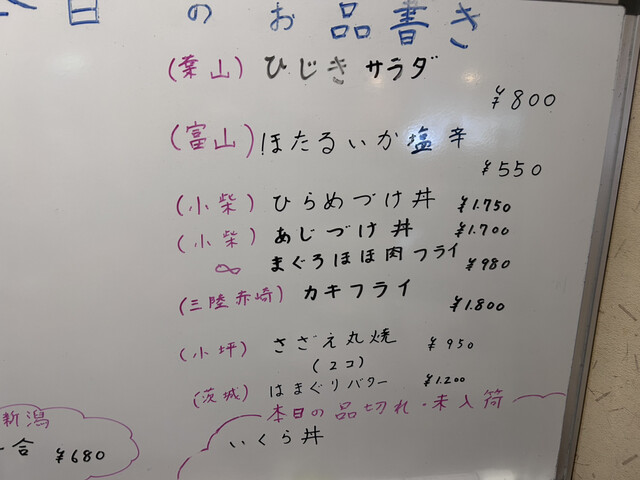 今日のお品書き
(葉山) ひじきサラダ
¥800
(富山) ほたるいか塩辛
¥550
(小柴) ひらめづけ丼 ¥1.750
(小柴) あじづけ丼 ¥1.700
∞ まぐろほほ肉フライ ¥980
(三陸赤崎) カキフライ ¥1.800
(小坪) さざえ丸焼 ¥950
(2コ)
(茨城) はまぐりバター ¥1.200
本日の品切れ・未入荷
いくら丼
新潟
一合 ¥680